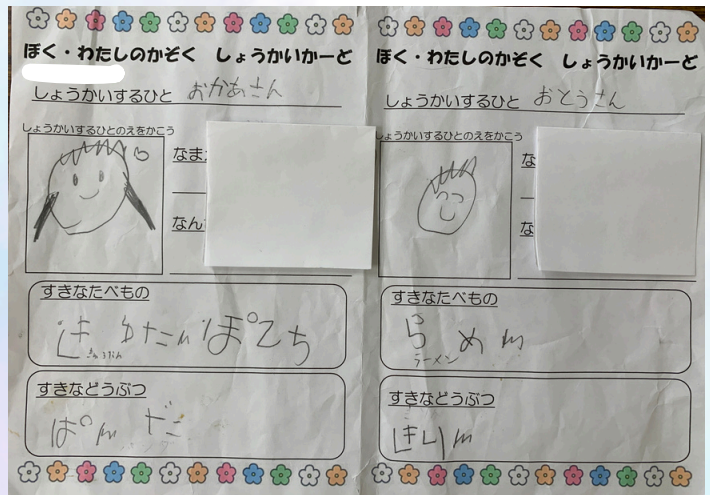 ぼく・わたしのかぞく しょうかいかーど
しょうかいするひと おかあさん
しょうかいするひとのえをかこう
なま
なん
すきなたべもの
ぽてち
すきなどうぶつ
ぱんだ
ぼく・わたしのかぞく しょうかいかーど
しょうかいするひと おとうさん
しょうかいするひとのえをかこう
な
な
すきなたべもの
らめん
ラーメン
すきなどうぶつ